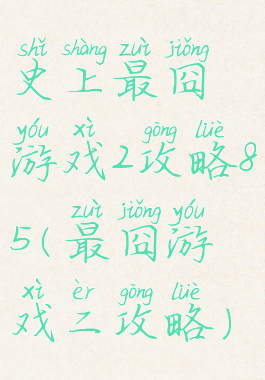 shǐ shàng zuì jiǒng
史上最囧
yóu xì gōng lüè
游戏2攻略8
zuì jiǒng yóu
5(最囧游
xì èr gōng lüè
戏二攻略)